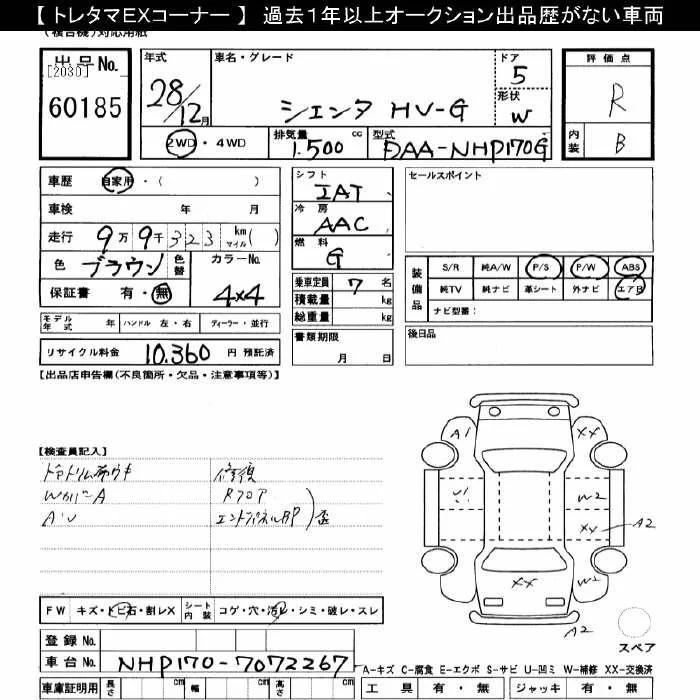 【 トレタマEXコーナー 】 過去1年以上オークション出品歴がない車両
出品 No.
[2030]
60185
年式
28/12月
車名・グレード
シエンタ HV-G
ドア
5
形状
W
2WD ・ 4WD
排気量
1.500 cc
型式
DAA-NHP170G
評価点
R
内装
B
車歴 自家用 ・ ( )
車検 年 月
走行 9万 9千 323 km マイル ( )
色 ブラウン 色替 カラーNo.
保証書 有 ・ 無 4X4
シフト
IAT
冷房
AAC
燃料
G
乗車定員 7 名
積載量 kg
総重量 kg
セールスポイント
装備品 S/R 純A/W P/S P/W ABS
純TV 純ナビ 革シート 外ナビ エアB
ナビ型番 :
モデル年式 年 ハンドル 左 ・ 右 ディーラー ・ 並行
リサイクル料金 10.360 円 預託済
書類期限
月 日
後日品
【出品店申告欄(不良箇所・欠品・注意事項等)】
【検査員記入】
WカバーA
A・U
修復
Rフロア
エンドパネルAP
歪
A1
XX
U1
W2
XX
A2
XX
W2
A2
スペア
FW キズ・トビ石・割レX シート内装 コゲ・穴・汚レ・シミ・破レ・スレ
登録 No.
車台 No. NHP170-7072267
A-キズ C-腐食 E-エクボ S-サビ U-凹ミ W-補修 XX-交換済
車庫証明用 長さ cm 幅 cm 高さ cm
工具 有 ・ 無 ジャッキ 有 ・ 無